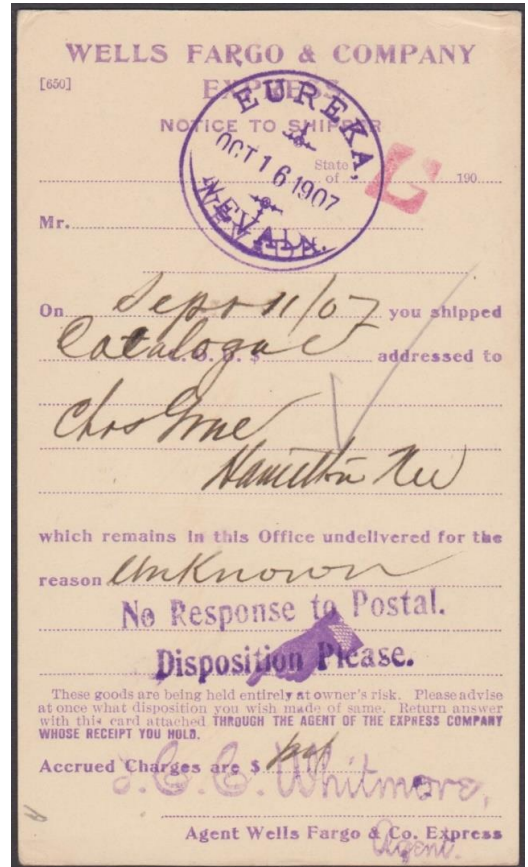 WELLS FARGO & COMPANY
[650]
EXPRESS
NOTICE TO SHIPPER
EUREKA,
OCT 16 1907
NEVADA.
State
of 190
Mr.
On Sept 11/07 you shipped
Catalogue C. O. D. $ addressed to
Chas
Hamilton Nev
which remains in this Office undelivered for the
reason Unknown
No Response to Postal.
Disposition Please.
These goods are being held entirely at owner's risk. Please advise
at once what disposition you wish made of same. Return answer
with this card attached THROUGH THE AGENT OF THE EXPRESS COMPANY
WHOSE RECEIPT YOU HOLD.
Accrued Charges are $
J. C. C. Whitmore,
Agent Wells Fargo & Co. Express
Agent.